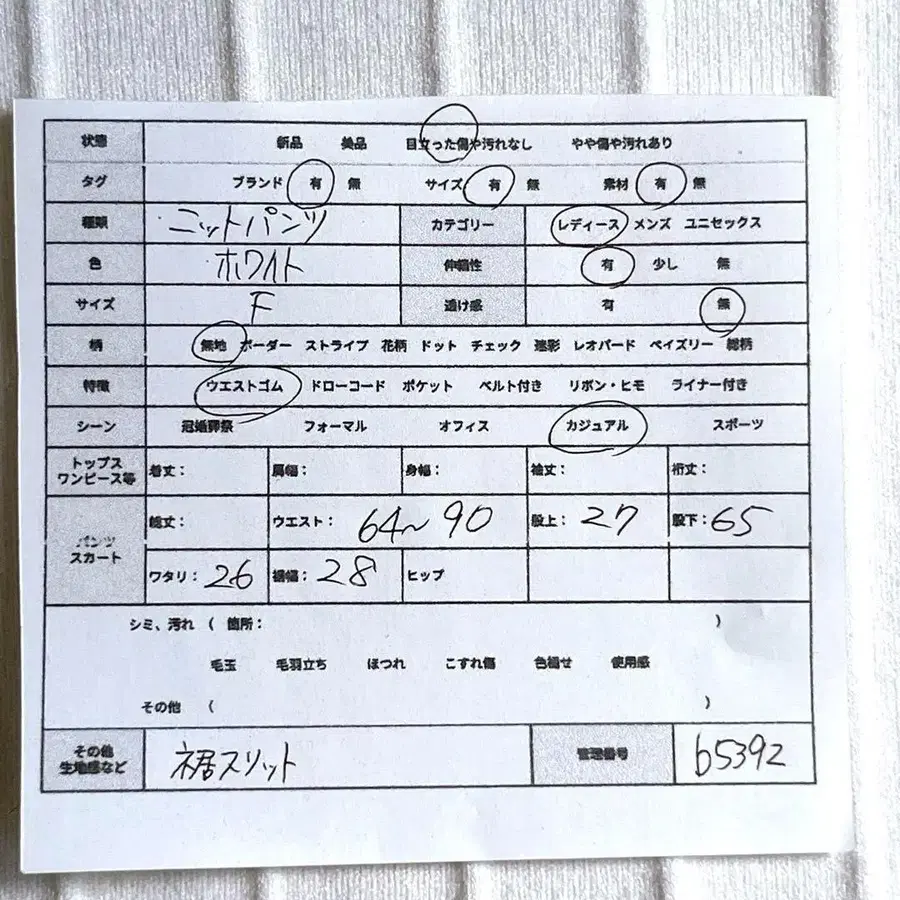 状態 新品 美品 目立った傷や汚れなし やや傷や汚れあり
タグ ブランド 有 無 サイズ 有 無 素材 有 無
種類 ニットパンツ カテゴリー レディース メンズ ユニセックス
色 ホワイト 伸縮性 有 少し 無
サイズ F 透け感 有 無
柄 無地 ボーダー ストライプ 花柄 ドット チェック 迷彩 レオパード ペイズリー 総柄
特徴 ウエストゴム ドローコード ポケット ベルト付き リボン・ヒモ ライナー付き
シーン 冠婚葬祭 フォーマル オフィス カジュアル スポーツ
トップス
ワンピース等 着丈: 肩幅: 身幅: 袖丈: 裄丈:
パンツ
スカート
総丈: ウエスト: 64~90 股上: 27 股下: 65
ワタリ: 26 裾幅: 28 ヒップ
シミ、汚れ ( 箇所: )
毛玉 毛羽立ち ほつれ こすれ傷 色褪せ 使用感
その他 ( )
その他
生地感など 裾スリット 管理番号 b5392